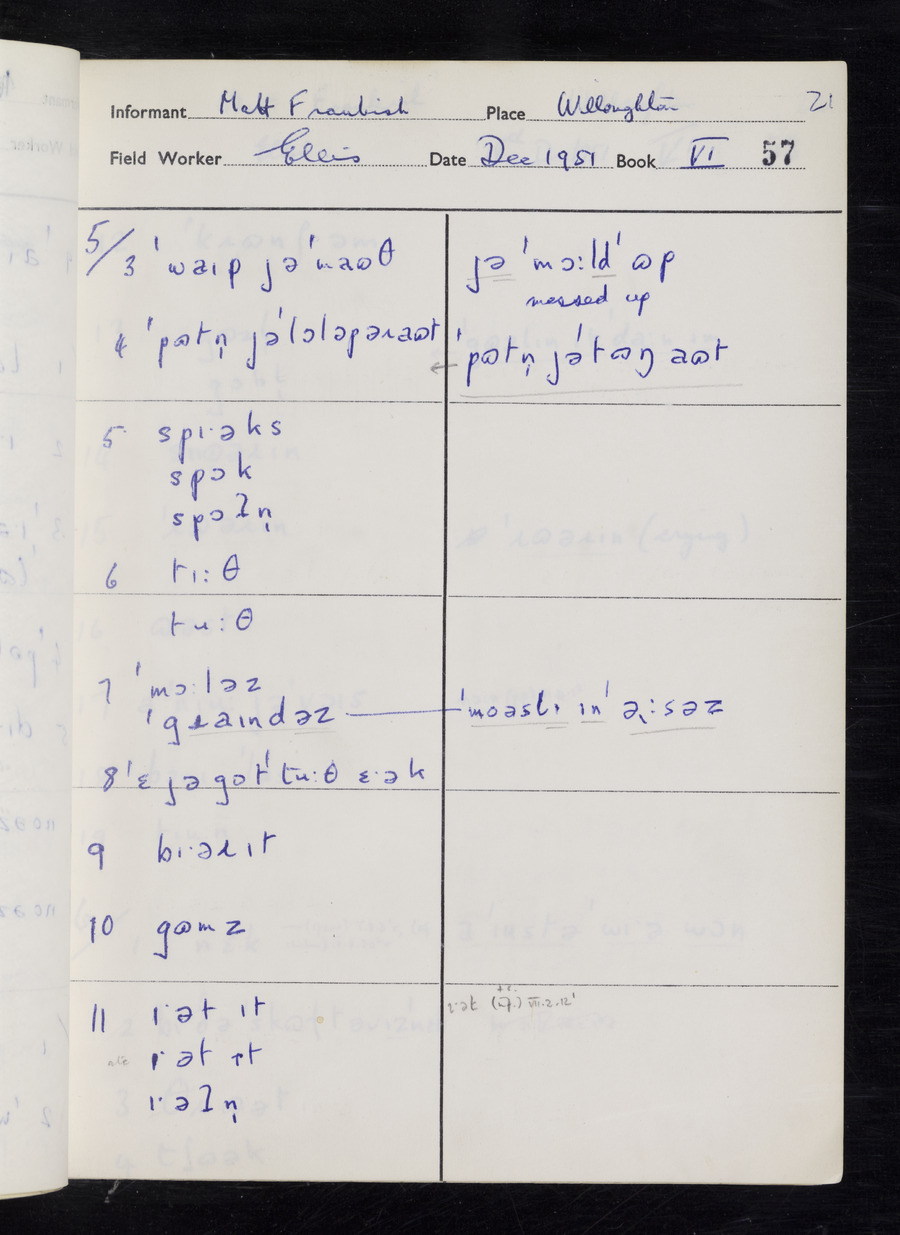 Informant Matt Frankish Place Willoughton 21
Field Worker Ellis Date Dec 1951 Book VI 57
5/3 ˈwaɪp jəˈmaʊθ
jəˈmɔːldˈ ʊp
messed up
4 ˈpʊtn̩ jəˈlɔləpəɹaʊt
ˈpʊtn̩ jəˈtʊŋ aʊt
5 spɪ·əks
spɔk
spɔʔn̩
6 tɪːθ
tuːθ
7 ˈmɔːləz
ˈgɹaɪndəz
ˈmoəslɪ ɪnˈ ə̣ːsəz
8 ˈɛ jə gɔtˈ tuːθ ɛ·ək
9 bɪ·əɹɪt
10 gʊmz
11 ɪ·ət ɪt
ɪ·ət ɪt
ɪ·əʔn̩
ɪ·ət VII.2.12